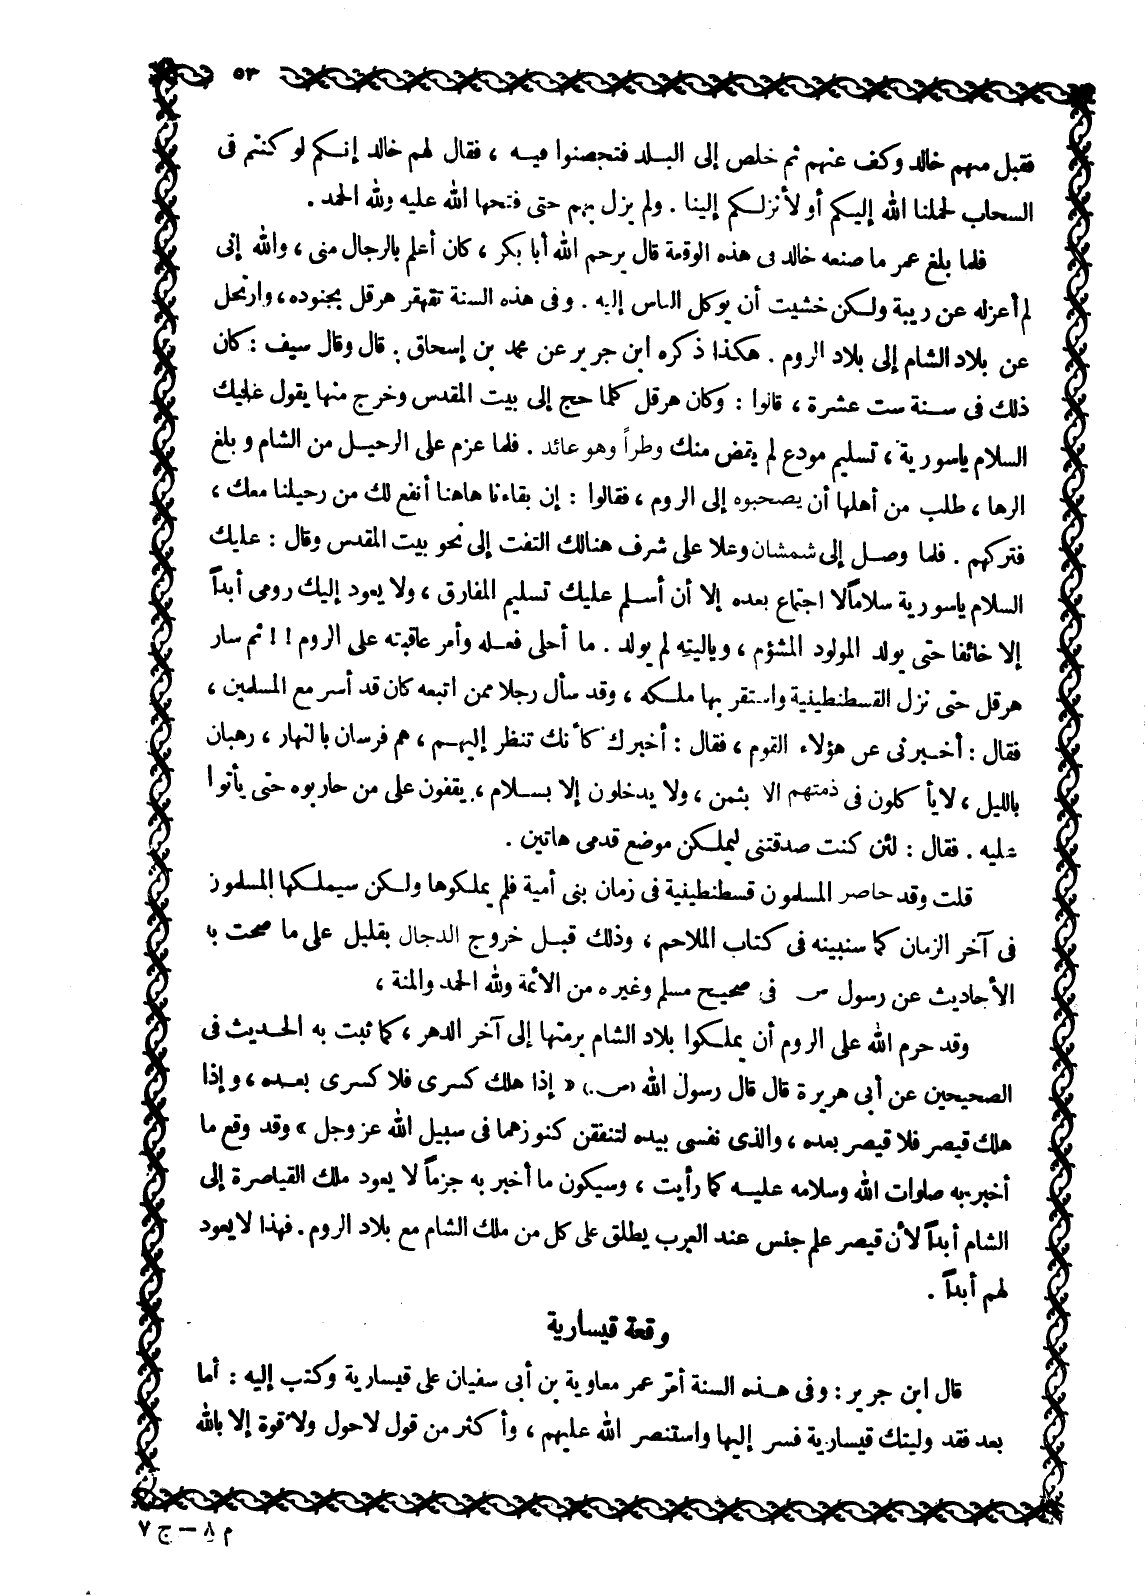 ٥٣
فقبل منهم خالد وكف عنهم ثم خلص إلى البلد فتحصنوا فيه ، فقال لهم خالد إنـكم لو كنتم فى
السحاب لحملنا الله إليكم أو لأنزلـكم إلينا . ولم يزل بهم حتى فتحها الله عليه ولله الحمد .
فلما بلغ عمر ما صنعه خالد فى هذه الوقعة قال يرحم الله أبا بكر ، كان أعلم بالرجال منى ، والله إنى
لم أعزله عن ريبة ولـكن خشيت أن يوكل الناس إليه . وفى هذه السنة تقهقر هرقل بجنوده ، وارتحل
عن بلاد الشام إلى بلاد الروم . هكذا ذكره ابن جرير عن محمد بن إسحاق . قال وقال سيف : كان
ذلك فى سـنة ست عشرة ، قالوا : وكان هرقل كلما حج إلى بيت المقدس وخرج منها يقول عليك
السلام ياسورية ، تسليم مودع لم يقض منك وطراً وهو عائد . فلما عزم على الرحيـل من الشام وبلغ
الرها ، طلب من أهلها أن يصحبوه إلى الروم ، فقالوا : إن بقاءنا هاهنا أنفع لك من رحيلنا معك ،
فتركهم . فلما وصـل إلى شمشان وعلا على شرف هنالك التفت إلى نحو بيت المقدس وقال : عليك
السلام ياسورية سلاماً لا اجتماع بعده إلا أن أسـلم عليك تسليم المفارق ، ولا يعود إليك رومى أبداً
إلا خائفا حتى يولد المولود المشؤم ، وياليته لم يولد . ما أحلى فعـله وأمر عاقبته على الروم ! ! ثم سار
هرقل حتى نزل القسطنطينية واستقر بها ملـكه ، وقد سأل رجلا ممن اتبعه كان قد أسر مع المسلمين ،
فقال : أخـبرنى عن هؤلاء القوم ، فقال : أخبرك كأنك تنظر إليهـم ، هم فرسان بالنهار ، رهبان
بالليل ، لا يأكلون فى ذمتهم الا بثمن ، ولا يدخلون إلا بسـلام ، يقفون على من حاربوه حتى يأتوا
عليه . فقال : لئن كنت صدقتنى ليملـكن موضع قدمى هاتين .
قلت وقد حاصر المسلمون قسطنطينية فى زمان بنى أمية فلم يملكوها ولـكن سيملـكها المسلمون
فى آخر الزمان كما سنبينه فى كتاب الملاحم ، وذلك قبـل خروج الدجال بقليل على ما صحت به
الأحاديث عن رسول ص فى صحيـح مسلم وغيره من الأئمة ولله الحمد والمنة ،
وقد حرم الله على الروم أن يملـكوا بلاد الشام برمتها إلى آخر الدهر ، كما ثبت به الحـديث فى
الصحيحين عن أبى هريرة قال قال رسول الله (ص.) « إذا هلك كسرى فلا كسرى بعـده ، وإذا
هلك قيصر فلا قيصر بعده ، والذى نفسى بيده لتنفقن كنوزهما فى سبيل الله عز وجل » وقد وقع ما
أخبر به صلوات الله وسلامه عليـه كما رأيت ، وسيكون ما أخبر به جزماً لا يعود ملك القياصرة إلى
الشام أبداً لأن قيصر علم جنس عند العرب يطلق على كل من ملك الشام مع بلاد الروم . فهذا لا يعود
لهم أبداً .
وقعة قيسارية
قال ابن جرير : وفى هـذه السنة أمّر عمر معاوية بن أبى سفيان على قيسارية وكتب إليه : أما
بعد فقد وليتك قيسارية فسر إليها واستنصر الله عليهم ، وأكثر من قول لاحول ولاقوة إلا بالله
م ٨ — ج ٧